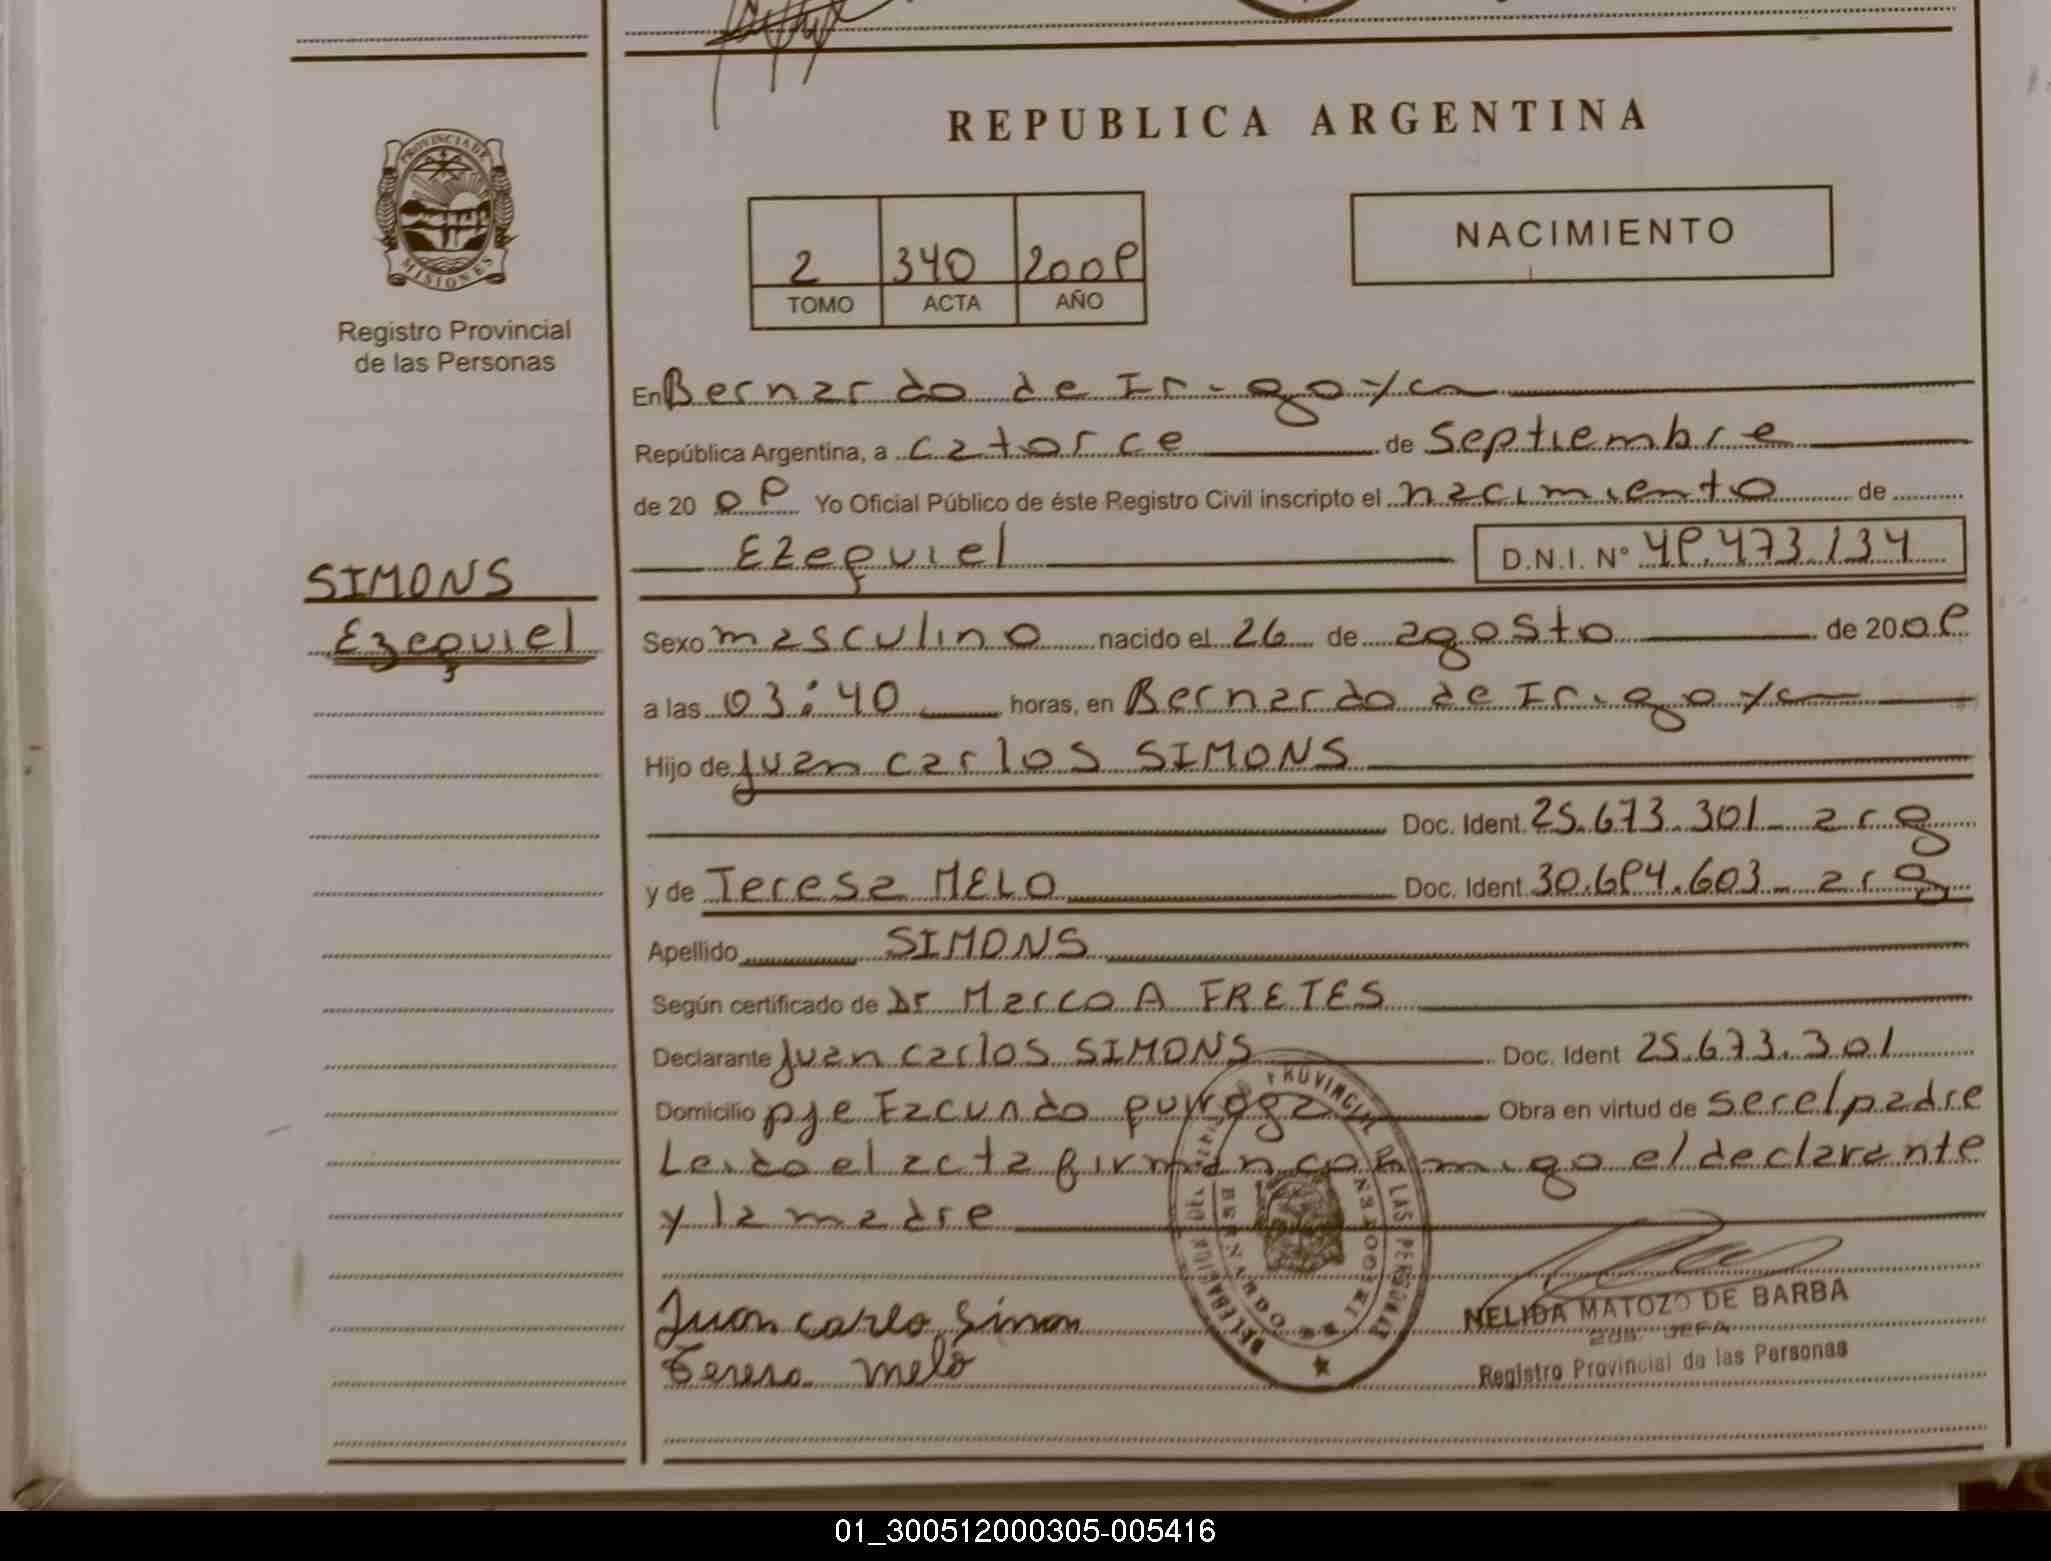 REPUBLICA ARGENTINA
PROVINCIA DE
MISIONES
Registro Provincial
de las Personas
2 340 2009
TOMO ACTA AÑO
NACIMIENTO
En Bernardo de Irigoyen
República Argentina, a catorce de septiembre
de 2009 Yo Oficial Público de éste Registro Civil inscripto el nacimiento de
Ezequiel D.N.I. N° 49.473.134
SIMONS
Ezequiel
Sexo masculino nacido el 26 de agosto de 2009
a las 03:40 horas, en Bernardo de Irigoyen
Hijo de Juan carlos SIMONS
Doc. Ident. 25.673.301 - arg
y de Teresa MELO Doc. Ident. 30.694.603 - arg
Apellido SIMONS
Según certificado de Dr Marco A FRETES
Declarante Juan carlos SIMONS Doc. Ident 25.673.301
Domicilio pje Facundo quiroga Obra en virtud de ser el padre
Leido el acta firman conmigo el declarante
y la madre
Juan carlo Simon
Teresa melo
NELIDA MATOZO DE BARBA
SUB. JEFA
Registro Provincial de las Personas
01_300512000305-005416